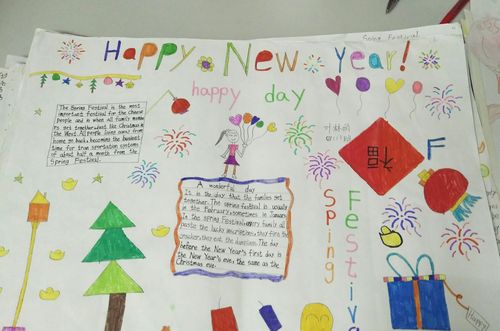 Spring Festival
Happy New year!
happy day
The Spring Festival is the most
important festival for the Chinese
people and is when all family members
to get together, just like Christmas in
the West. All people living away from
home go back, becoming the busiest
time for transportation systems
of about half a month from the
Spring Festival.
A wonderful day
It is the day that the families get
together. The spring festival is usually
in the February, sometimes in January
In the spring festival, every family all
paste the lucky inscription, they fire the
cracker, they eat the dumpling. The day
before the New Year's first day is
the New Year's eve, the same as the
Christmas eve.
福
F
Spring
Festiv
Happy